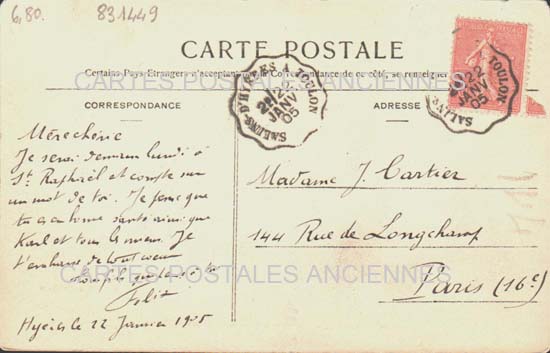 6,80. 831449
CARTE POSTALE
Certains Pays Etrangers n'acceptant pas la Correspondance de ce côté, se renseigner
CORRESPONDANCE
ADRESSE
SALINS-D'HYÈRES A TOULON
22
JANV
05
TOULON
22
JANV
05
Mère chérie
Je serai demain lundi à
St Raphaël et compte sur
un mot de toi. Je pense que
tu es en bonne santé ainsi que
Karl et tous les miens. Je
t'embrasse de tout cœur
Hyères le 22 Janvier 1905
Madame J. Cartier
144 Rue de Longchamp
Paris (16e)
CARTES POSTALES ANCIENNES
CARTES POSTALES ANCIENNES